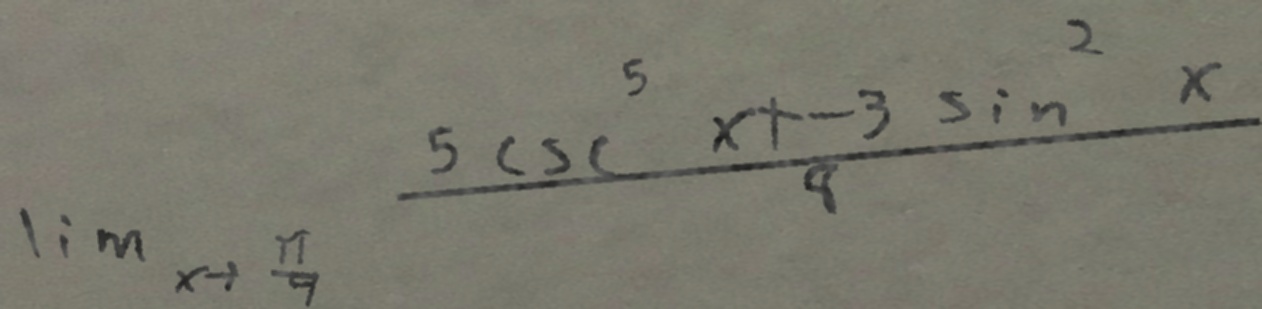 \lim_{x \to \frac{\pi}{9}} \frac{5 \csc^5 x + -3 \sin^2 x}{8}